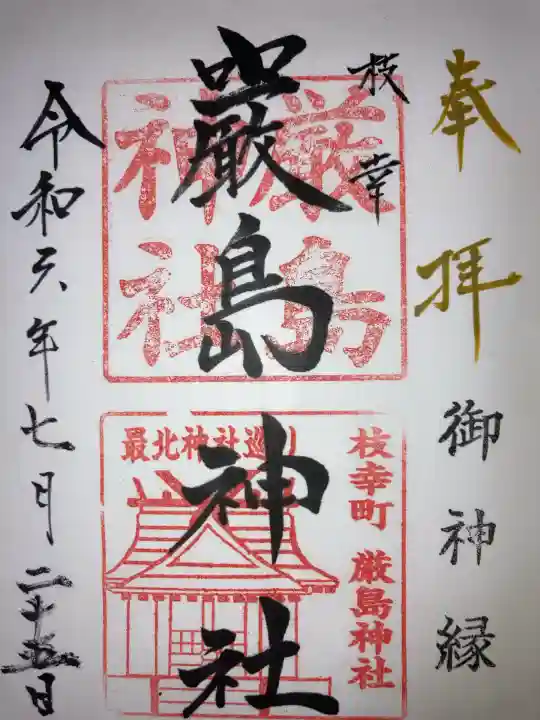 奉拝
御神縁
枝幸
巌島神社
厳島神社
最北神社巡り
枝幸町 厳島神社
令和六年七月二十五日